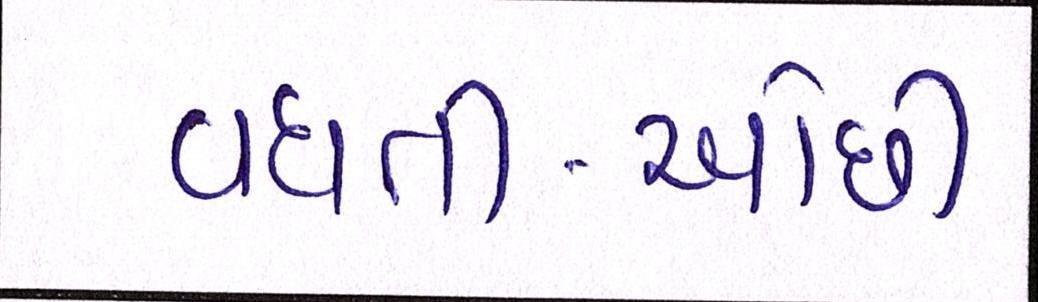 વધતી-ઓછી